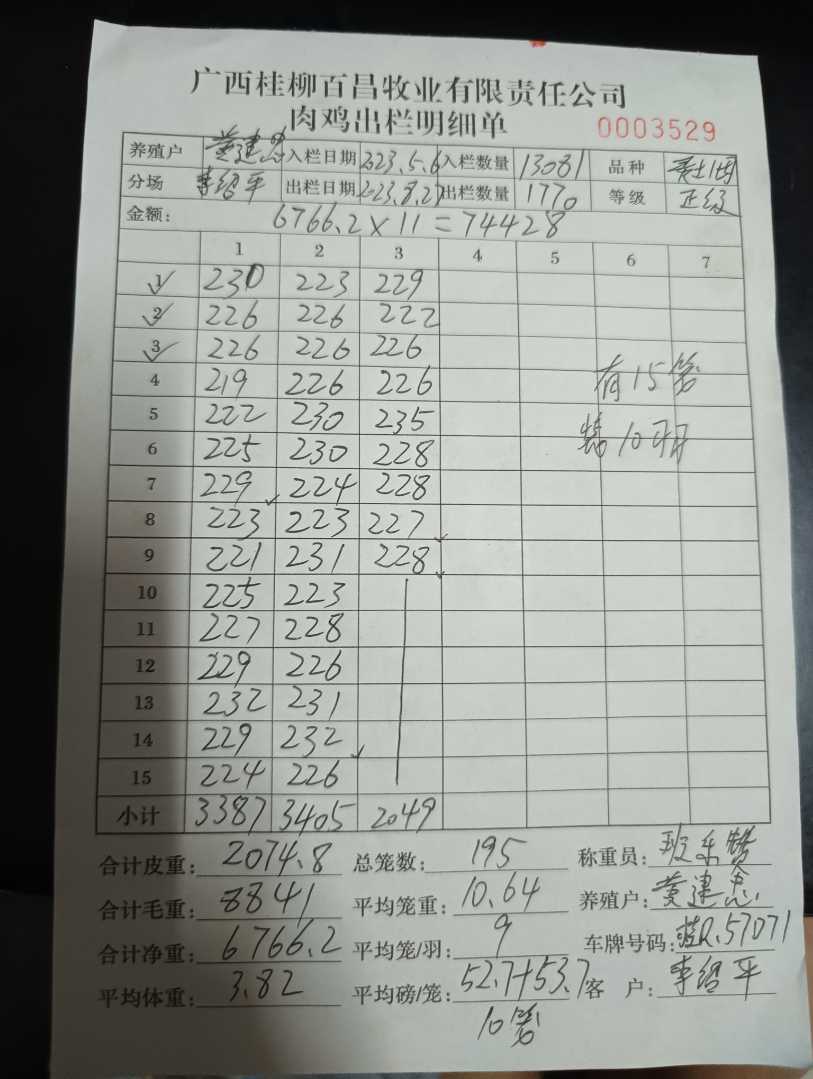 广西桂柳百昌牧业有限责任公司
肉鸡出栏明细单 0003529
养殖户 黄建忠 入栏日期 2023.5.6 入栏数量 13081 品种
分场 李绍平 出栏日期 2023.8.27 出栏数量 1770 等级 正级
金额: 6766.2×11=74428
1 2 3 4 5 6 7
1 230 223 229
2 226 226 222
3 226 226 226
4 219 226 226 有15笼
5 222 230 235 10
6 225 230 228
7 229 224 228
8 223 223 227
9 221 231 228
10 225 223
11 227 228
12 229 226
13 232 231
14 229 232
15 224 226
小计 3387 3405 2049
合计皮重: 2074.8 总笼数: 195 称重员: 班
合计毛重: 8841 平均笼重: 10.64 养殖户: 黄建忠
合计净重: 6766.2 平均笼/羽: 9 车牌号码: R.57071
平均体重: 3.82 平均磅/笼: 52.7+53.7 客 户: 李绍平
10笼